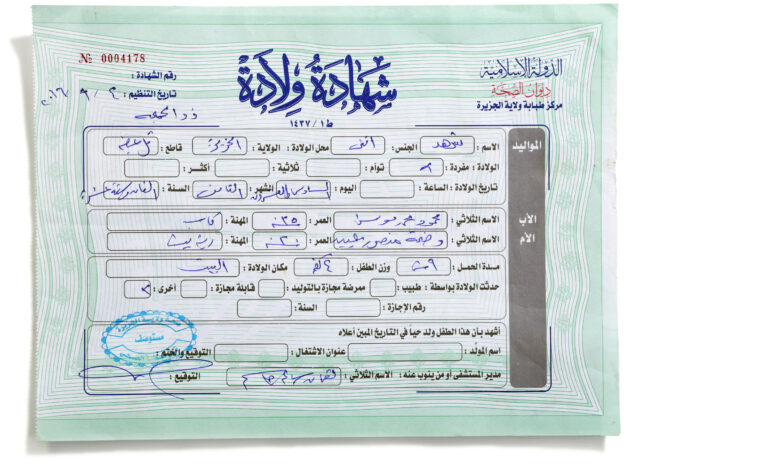 № 0004178
شهادة ولادة
ط١ / ١٤٣٧
الدولة الإسلامية
ديوان الصحة
مركز طبابة ولاية الجزيرة
رقم الشهادة :
تاريخ التنظيم : ٢٠١٦ / ٩ / ٢
ذو الحجة
المواليد
الاسم : شهد الجنس : انثى محل الولادة : الولاية : الجزيرة قاطع :
الولادة : مفردة : توأم : ثلاثية : أكثر :
تاريخ الولادة : الساعة : اليوم : السادس والعشرون الشهر : الثامن السنة :
الأب
الاسم الثلاثي : محمود محمد العمر : ٣٥ سنة المهنة : كاسب
الأم
الاسم الثلاثي : العمر : ٢٠ سنة المهنة : ربة بيت
مدة الحمل : ٩ ش وزن الطفل : ٤ كغ مكان الولادة : البيت
حدثت الولادة بواسطة : طبيب : ممرضة مجازة بالتوليد : قابلة مجازة : أخرى :
رقم الإجازة : السنة :
أشهد بأن هذا الطفل ولد حياً في التاريخ المبين أعلاه
اسم المولد : عنوان الاشتغال : التوقيع والختم :
مدير المستشفى أو من ينوب عنه : الاسم الثلاثي : التوقيع :
مستوصف